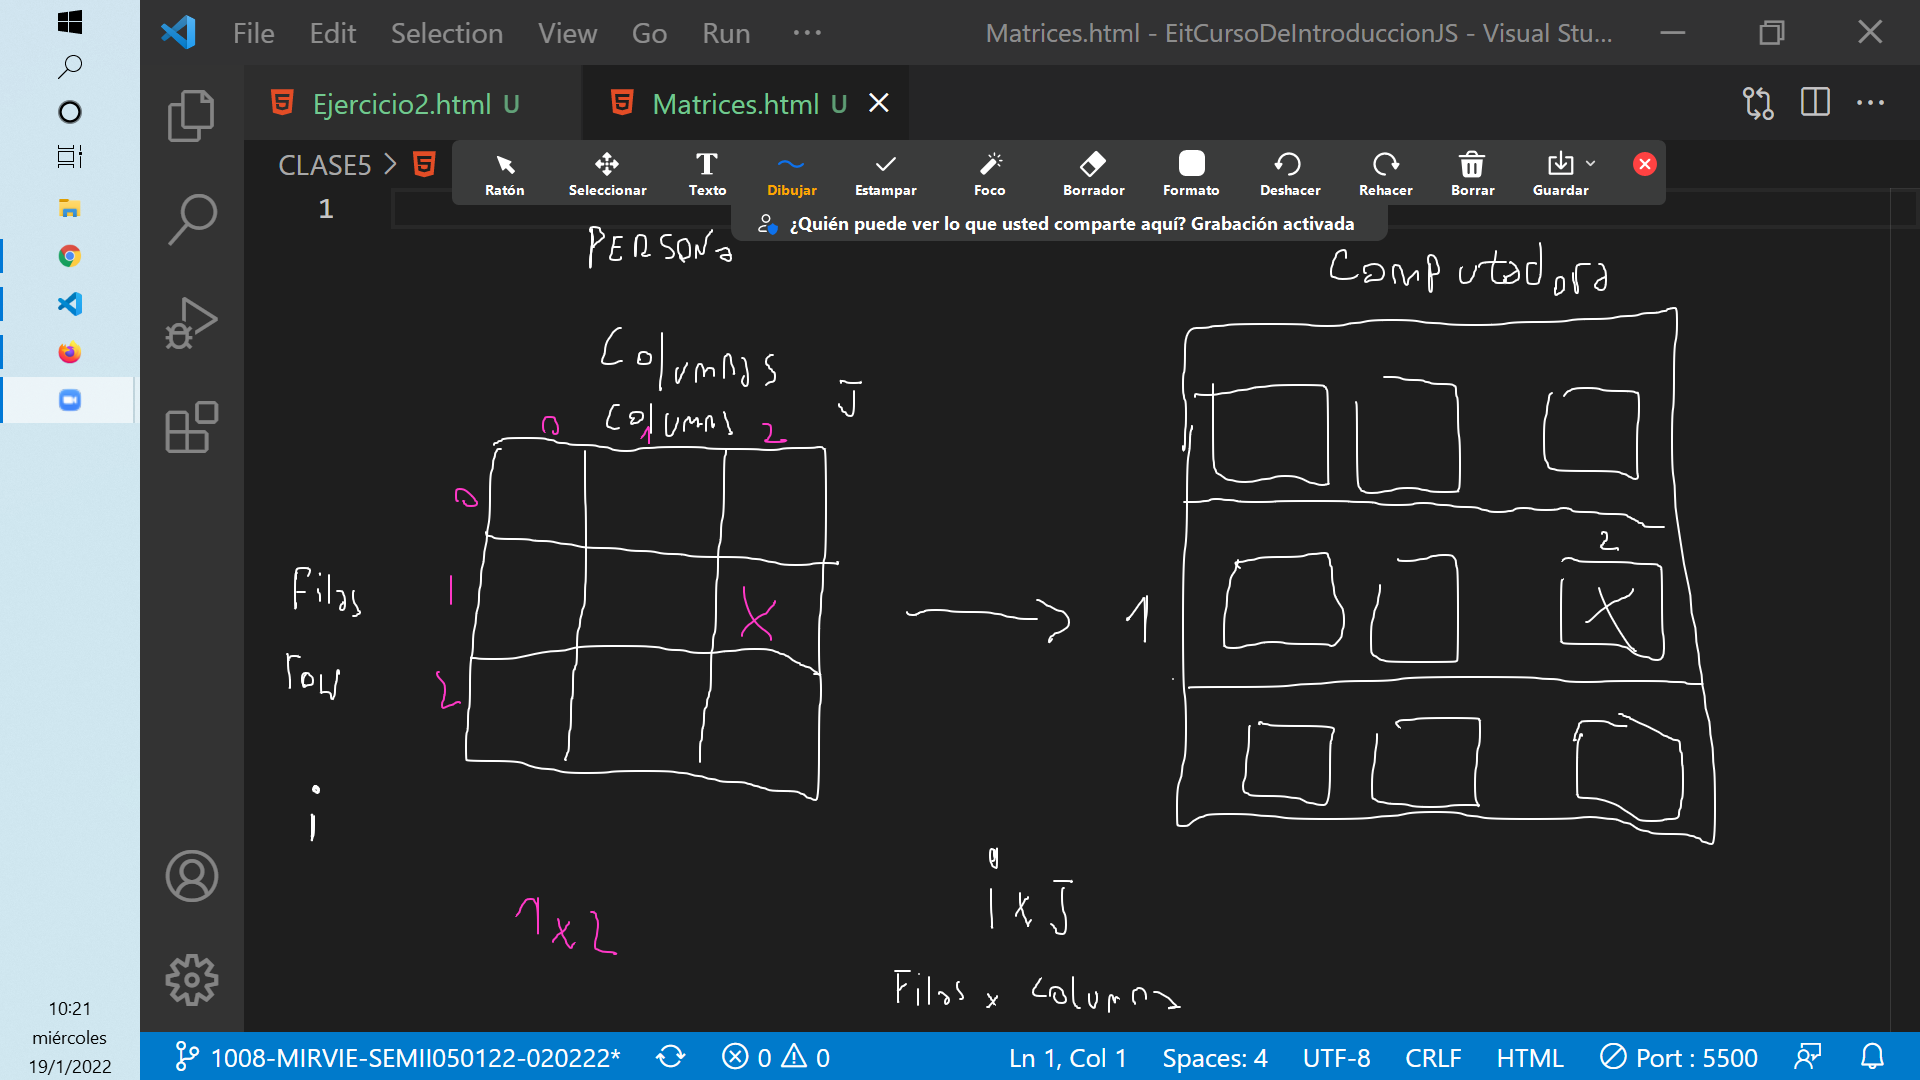 File Edit Selection View Go Run ··· Matrices.html - EitCursoDeIntroduccionJS - Visual Stu...
Ejercicio2.html U Matrices.html U
CLASE5 >
Ratón Seleccionar Texto Dibujar Estampar Foco Borrador Formato Deshacer Rehacer Borrar Guardar
1
¿Quién puede ver lo que usted comparte aquí? Grabación activada
PERSONA
Computadora
Columnas
J
Columns
0 1 2
0
2
Filas 1 X 1 X
row 2
i
1x2
i x J
Filas x columnas
10:21
miércoles
19/1/2022
1008-MIRVIE-SEMII050122-020222* 0 0 Ln 1, Col 1 Spaces: 4 UTF-8 CRLF HTML Port : 5500